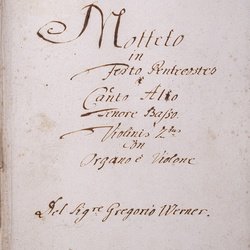 Motteto
in
Festo Pentecostes
a
Canto Alto
Tenore Basso.
Violinis 2bus
con
Organo è Violone
Del Sigre Gregorio Werner.